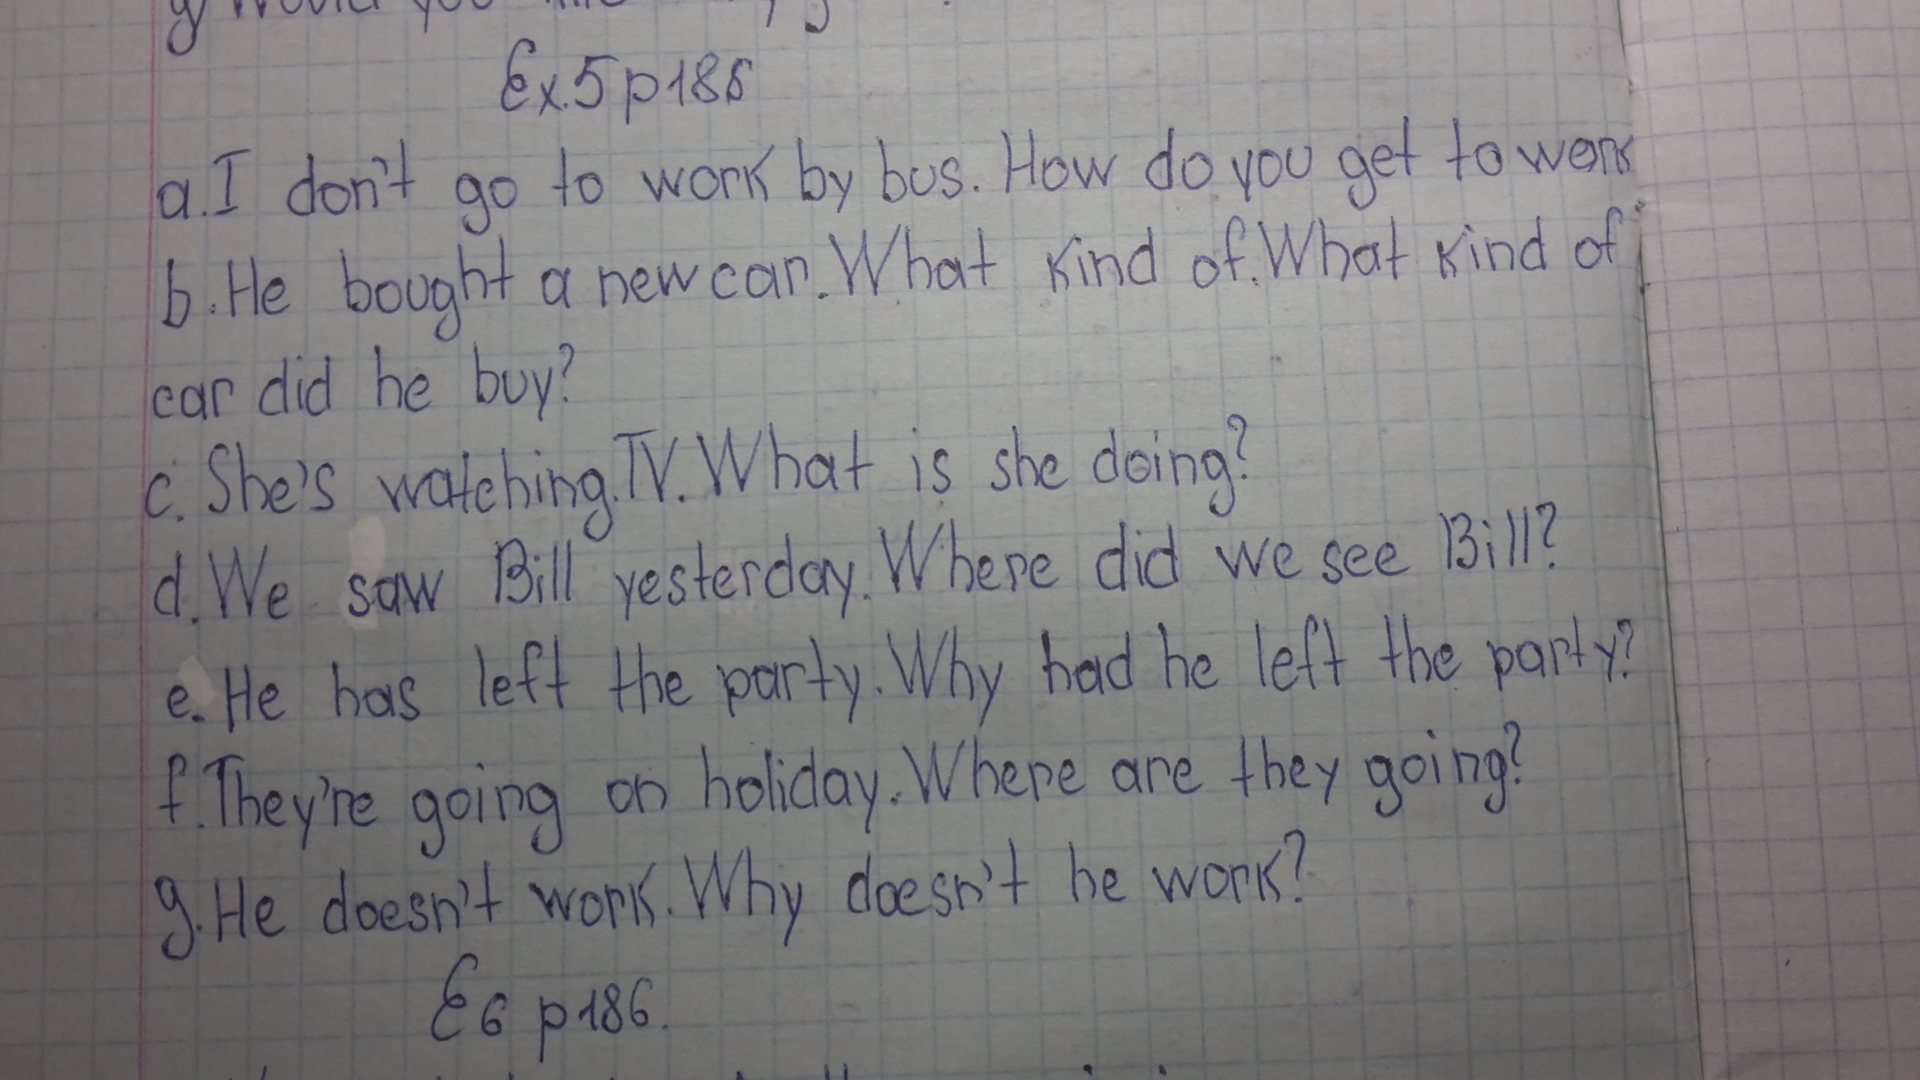 g) Would you like
Ex.5 p186
a. I don't go to work by bus. How do you get to work
b. He bought a new car. What kind of. What kind of
car did he buy?
c. She's watching. TV. What is she doing?
d. We saw Bill yesterday. Where did we see Bill?
e. He has left the party. Why had he left the party?
f. They're going on holiday. Where are they going?
g. He doesn't work. Why doesn't he work?
E6 p186.